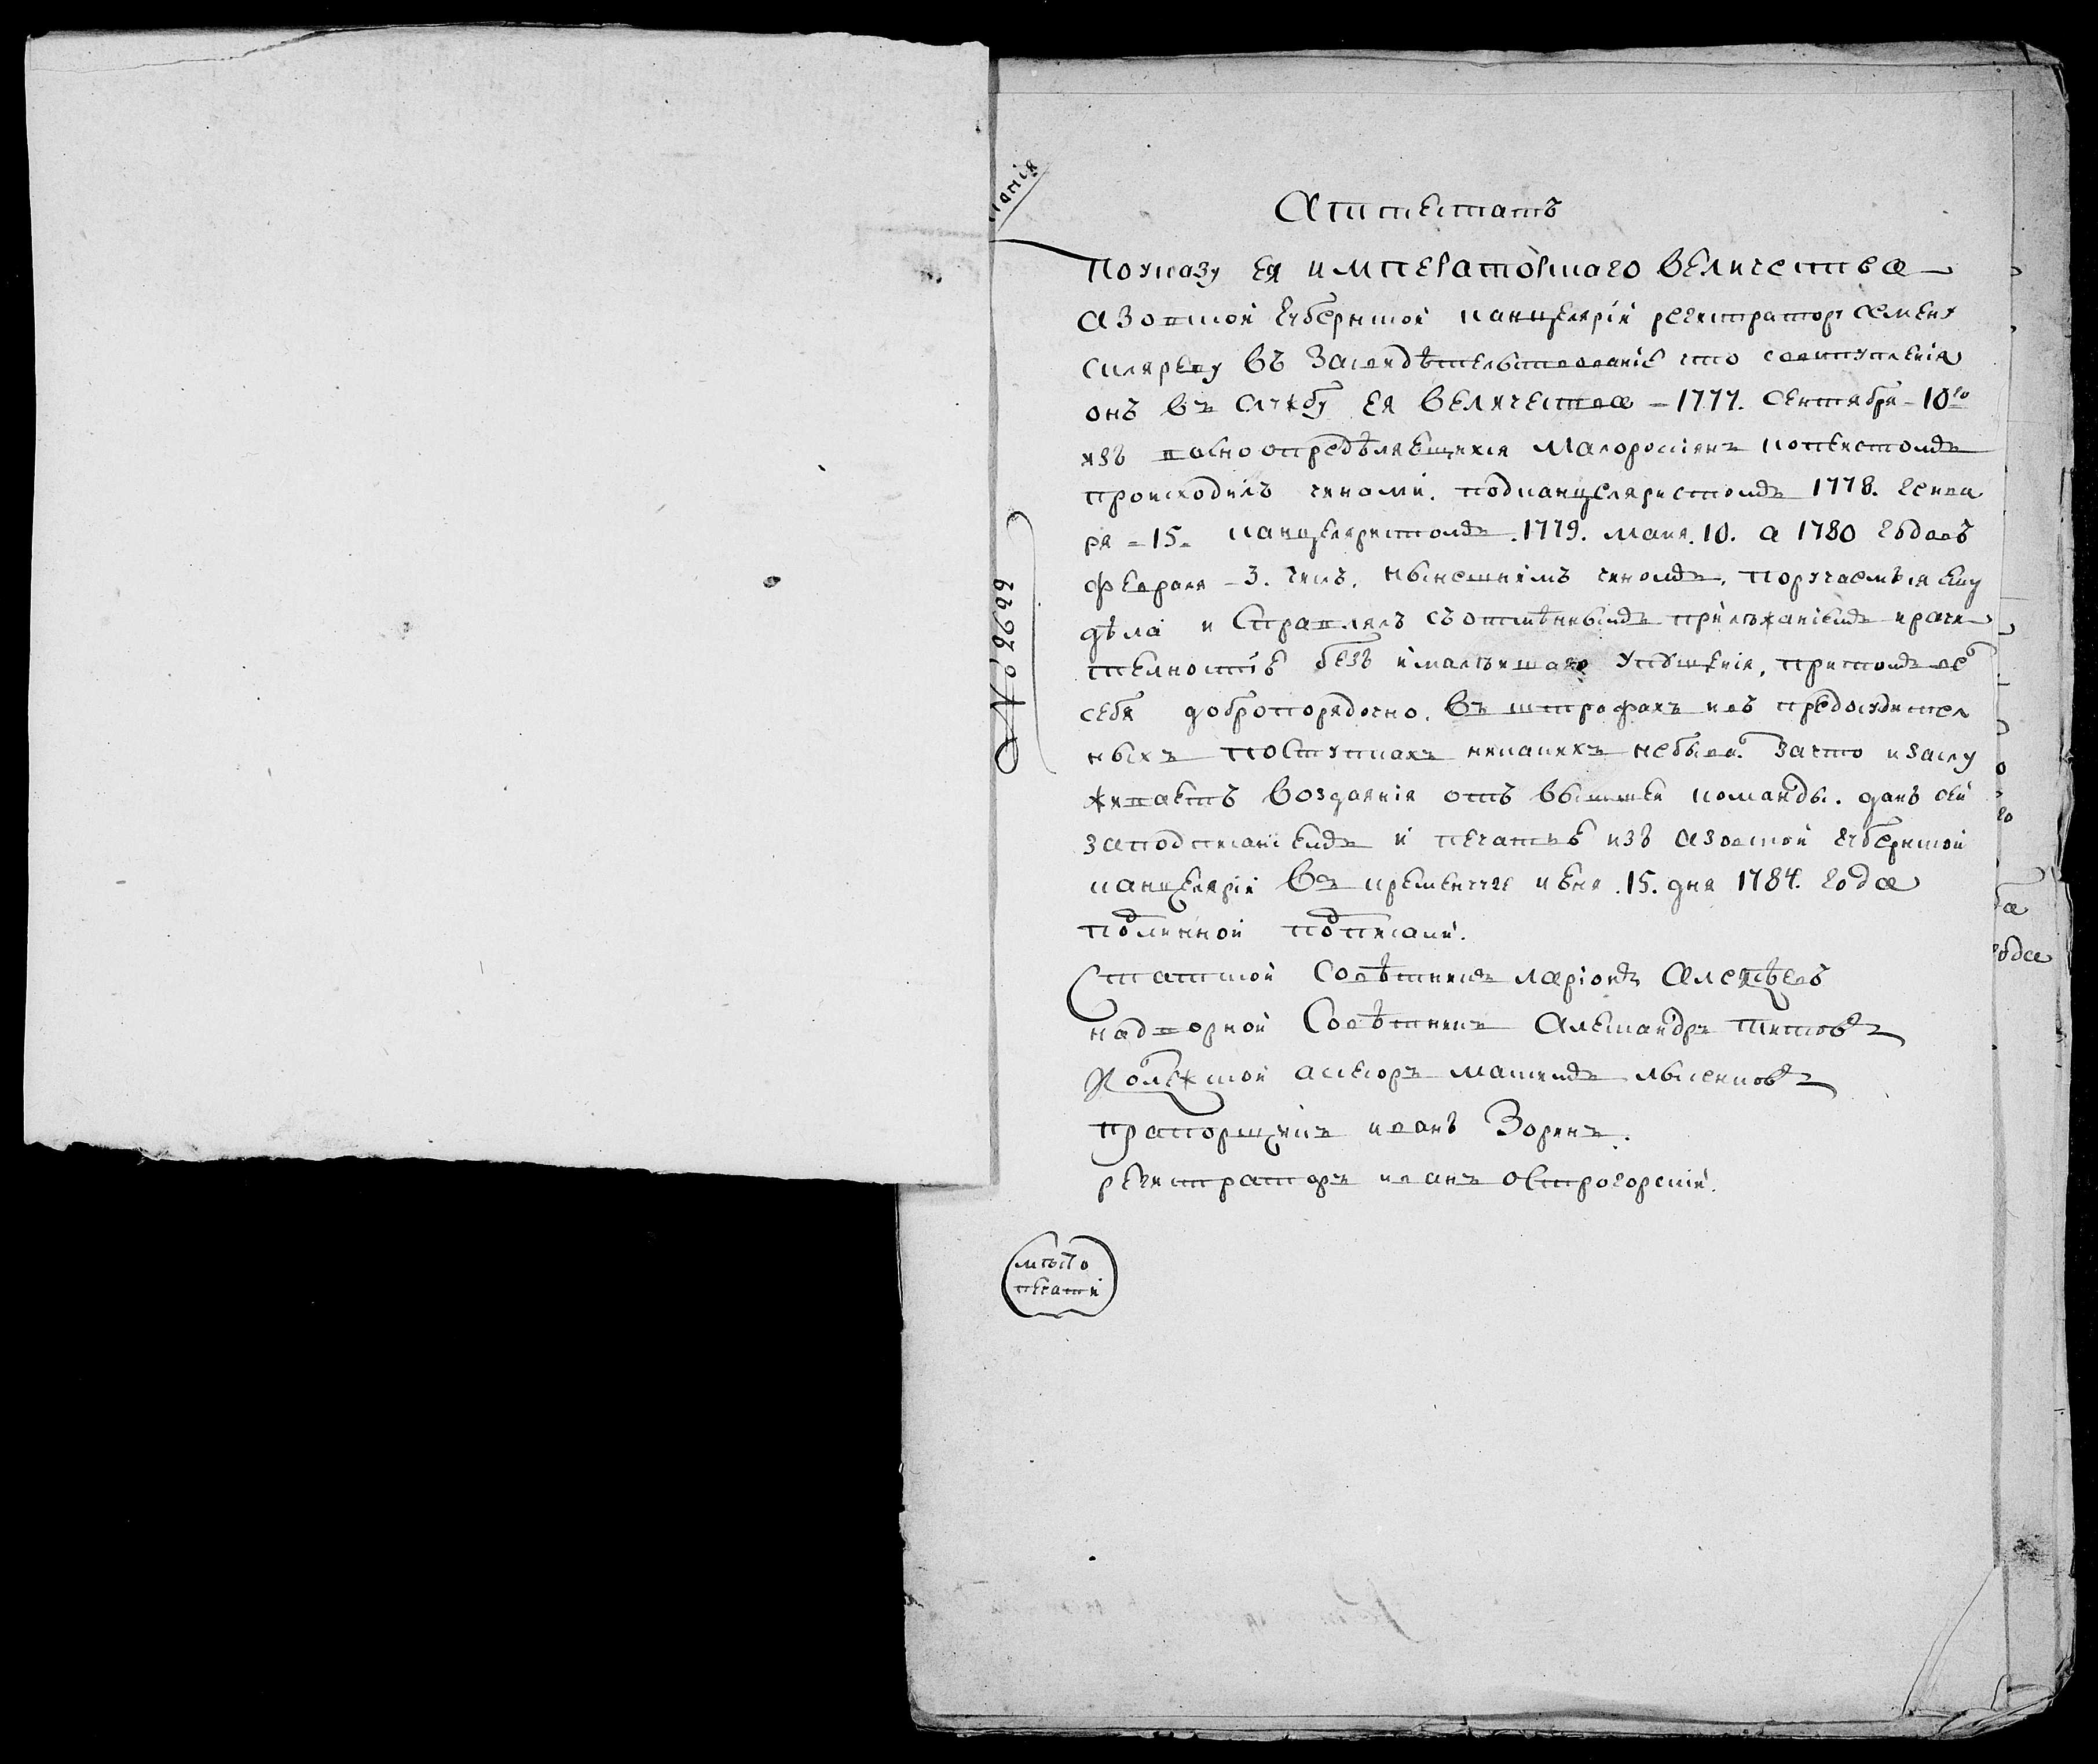 Аттестатъ
по указу Ея императорскаго Величества
Азовской Губернской канцеляріи регистратору Семену
Скляреву въ Засвидѣтельствованіе что совступленія
онъ въ Службу Ея Величества 1777. Сентября 10го
изъ вольноопредѣляющихся Малоросіянъ копеистомъ
происходилъ чинами. подканцеляристомъ 1778. генва
ря 15. канцеляристомъ 1779. маия. 10. а 1780 годовъ
февраля 3. числъ. нынешнимъ чиномъ. поручаемыя ему
дѣла исправлялъ съ отмѣннымъ прилѣжаніемъ ирачи
телностію безъ ималѣишаго упущенія. притомъ велъ
себя добропорядочно. въ штрафахъ ивъ предосудител
ныхъ поступкахъ никакихъ небывалъ. зачто изаслу
живаетъ воздаянія отъ вышней команды. данъ сей
заподписаніемъ и печатью изъ Азовской Губернской
канцеляріи въ кременчуге июня 15. дня 1784. года
подлинной подписали.
Статской Совѣтникъ ларіонъ Алексѣевъ
надворной Совѣтникъ Александръ титовъ
Колежской асесоръ максимъ лысенковъ
прапорщикъ иванъ Зоринъ.
регистраторъ иванъ острогорскій.
мѣсто
печати
№